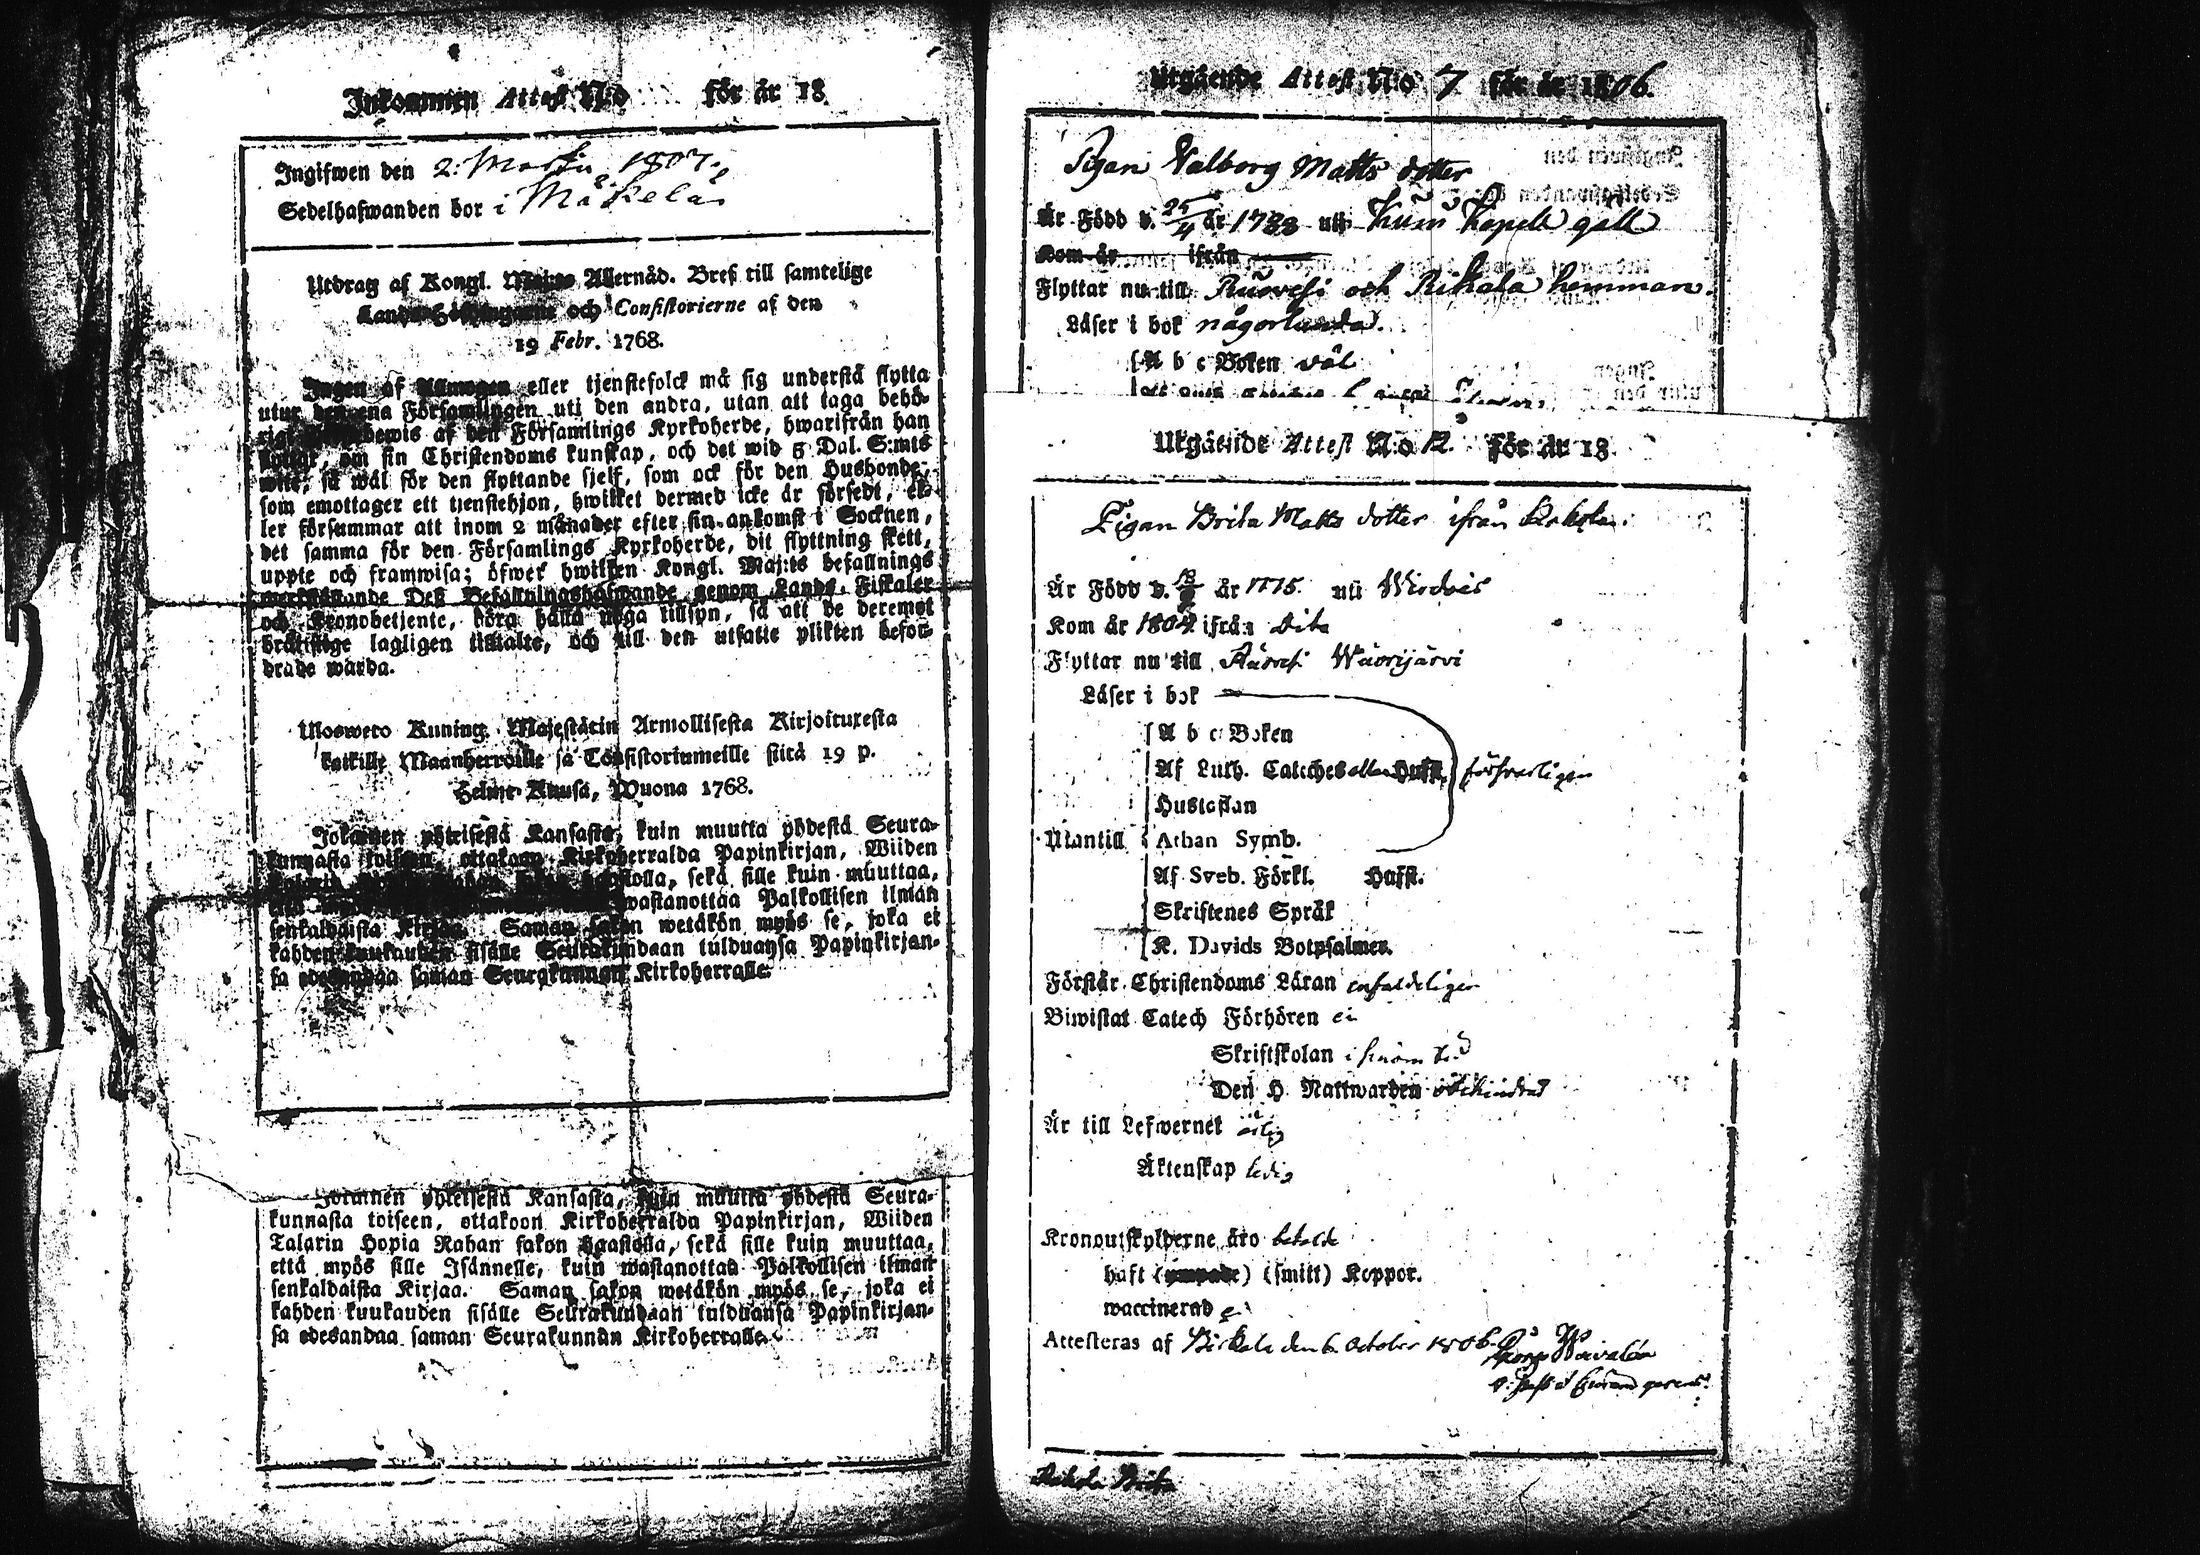 Inkommen Attest N:o för år 18
Ingifwen den 2: Martii 1807.
Sedelhafwanden bor i Mäkelä
Utdrag af Kongl. Majts Allernåd. Bref till samtelige
Landshöfdingarne och Consistorierne af den
19 Febr. 1768.
Ingen af Allmogen eller tjenstefolck må sig understå flytta
utur den ena Församlingen uti den andra, utan att taga behö-
rigt bewis af den Församlings Kyrkoherde, hwarifrån han
flyttar, om sin Christendoms kunskap, och det wid 5 Dal. S:mts
wite, så wäl för den flyttande sjelf, som ock för den Husbonde,
som emottager ett tjenstehjon, hwilket dermed icke är försedt, el-
ler försummar att inom 2 månader efter sin ankomst i Socknen,
det samma för den Församlings Kyrkoherde, dit flyttning skett,
uppte och framwisa; öfwer hwilken Kongl. Maj:ts befallnings
werkställande Deß Befallningshafwande genom Lands Fiskaler
och Kronobetjente, böra hålla noga tillsyn, så att de deremot
bråttslige lagligen tilltalte, och till den utsatte plikten befor-
drade warda.
Uloswero Kuning. Majestätin Armollisesta Kirjoituxesta
kaikille Maanherroille ja Consistoriumeille siitä 19 p.
Helme-Kuusa, Wuona 1768.
Jokainen yhteisestä Kansasta, kuin muutta yhdestä Seura-
kunnasta toiseen, ottakoon Kirkoherralda Papinkirjan, Wiiden
haastolla, sekä sille kuin muuttaa,
wastanottaa Palkollisen ilman
senkaldaista Kirjaa. Saman sakon wetäkön myös se, joka ei
kahden kuukauden sisälle Seurakundaan tulduansa Papinkirjan-
sa edesandaa saman Seurakunnan Kirkoherralle.
Jokainen yhteisestä Kansasta, kuin muutta yhdestä Seura-
kunnasta toiseen, ottakoon Kirkoherralda Papinkirjan, Wiiden
Talarin Hopia Rahan sakon haastolla, sekä sille kuin muuttaa,
että myös sille Isännelle, kuin wastanottaa Palkollisen ilman
senkaldaista Kirjaa. Saman sakon wetäkön myös se, joka ei
kahden kuukauden sisälle Seurakundaan tulduansa Papinkirjan-
sa edesandaa saman Seurakunnan Kirkoherralle.
Utgående Attest N:o 7 för år 1806.
Pigan Valborg Matts dotter
Är Född d. 25/4 år 1788 uti Kuru Kapell gäll
Kom år ifrån
Flyttar nu till Ruovesi och Rikala hemman.
Läser i bok någorlunda.
A b c Boken väl
Utgående Attest N:o 12. för år 18
Pigan Brita Matts dotter ifrån
Är Född d. år 1775. uti Wirdois
Kom år 1804 ifrån dito
Flyttar nu till Ruovesi Wäärijärvi
Läser i bok
A b c Boken
Af Luth. Cateches Hufst. försvarligen
Hustaflan
Utantill Athan Symb.
Af Sveb. Förkl. Hafst.
Skriftenes Språk
K. Davids Botpsalmer.
Förstår Christendoms Läran enfaldeligen
Biwistat Catech Förhören ei
Skriftskolan i sinom tid
Den H. Nattwarden obehindrad
Är till Lefwernet ärlig
Äktenskap ledig
Kronoutskylderne äro betalde
haft (ympade) (smitt) Koppor.
waccinerad ei
Attesteras af Birkala den 6 October 1806.